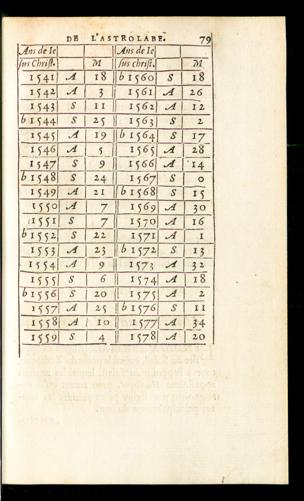 DE L'ASTROLABE. 79
Ans de Ie Ans de Ie
sus Christ. M sus Christ. M
1541 A 18 b 1560 S 18
1542 A 3 1561 A 26
1543 S 11 1562 A 12
b 1544 S 25 1563 S 2
1545 A 19 b 1564 S 17
1546 A 5 1565 A 28
1547 S 9 1566 A 14
b 1548 S 24 1567 S 0
1549 A 21 b 1568 S 15
1550 A 7 1569 A 30
1551 S 7 1570 A 16
b 1552 S 22 1571 A 1
1553 A 23 b 1572 S 13
1554 A 9 1573 A 32
1555 S 6 1574 A 18
b 1556 S 20 1575 A 2
1557 A 25 b 1576 S 11
1558 A 10 1577 A 34
1559 S 4 1578 A 20